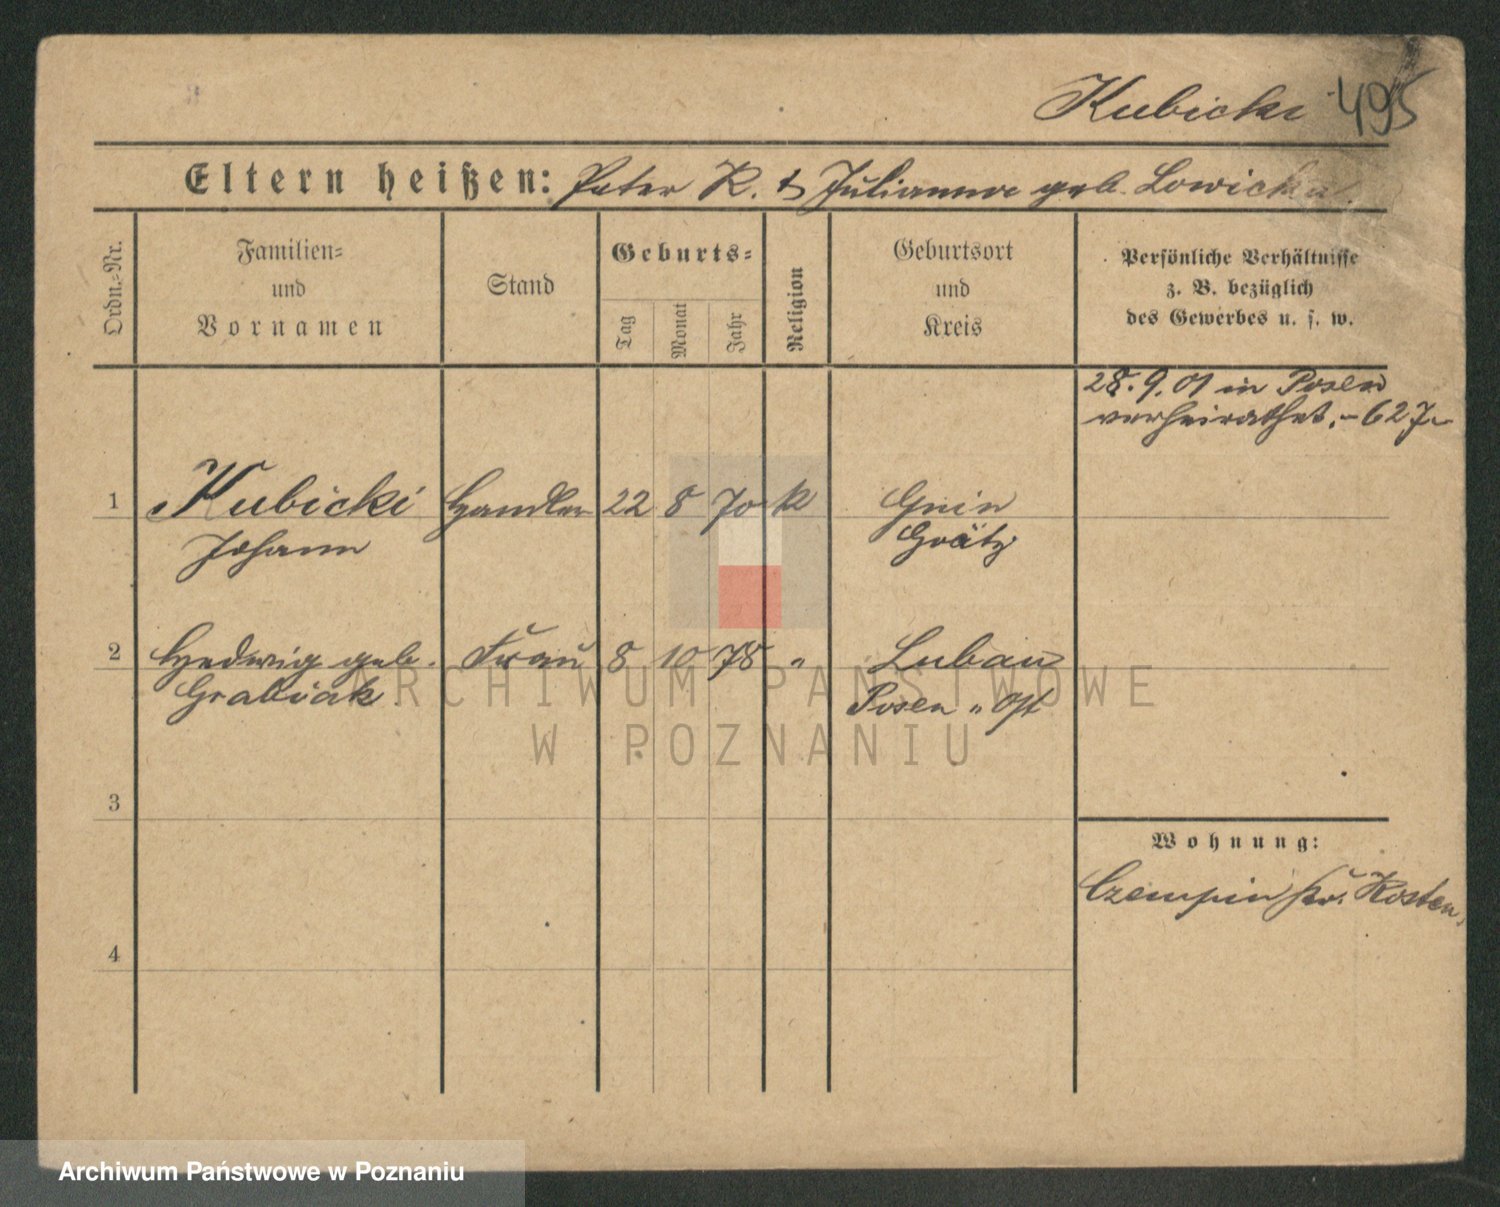 Kubicki 495
Eltern heißen: Peter K. & Julianna geb. Lowicka.
Ordn.-Nr.
Familien-
und
Vornamen
Stand
Geburts-
Tag
Monat
Jahr
Religion
Geburtsort
und
Kreis
Persönliche Verhältnisse
z. B. bezüglich
des Gewerbes u. s. w.
28.9.01 in Posen
verheirathet. - 627
1 Kubicki Handler 22 8 70 k Gnin
Johann Grätz
2 Hedwig geb. Frau 8 10 78 " Luban
Grabiak Posen " Ost
3
Wohnung:
Czempin Kr. Kosten.
4
ARCHIWUM PAŃSTWOWE
W POZNANIU
Archiwum Państwowe w Poznaniu